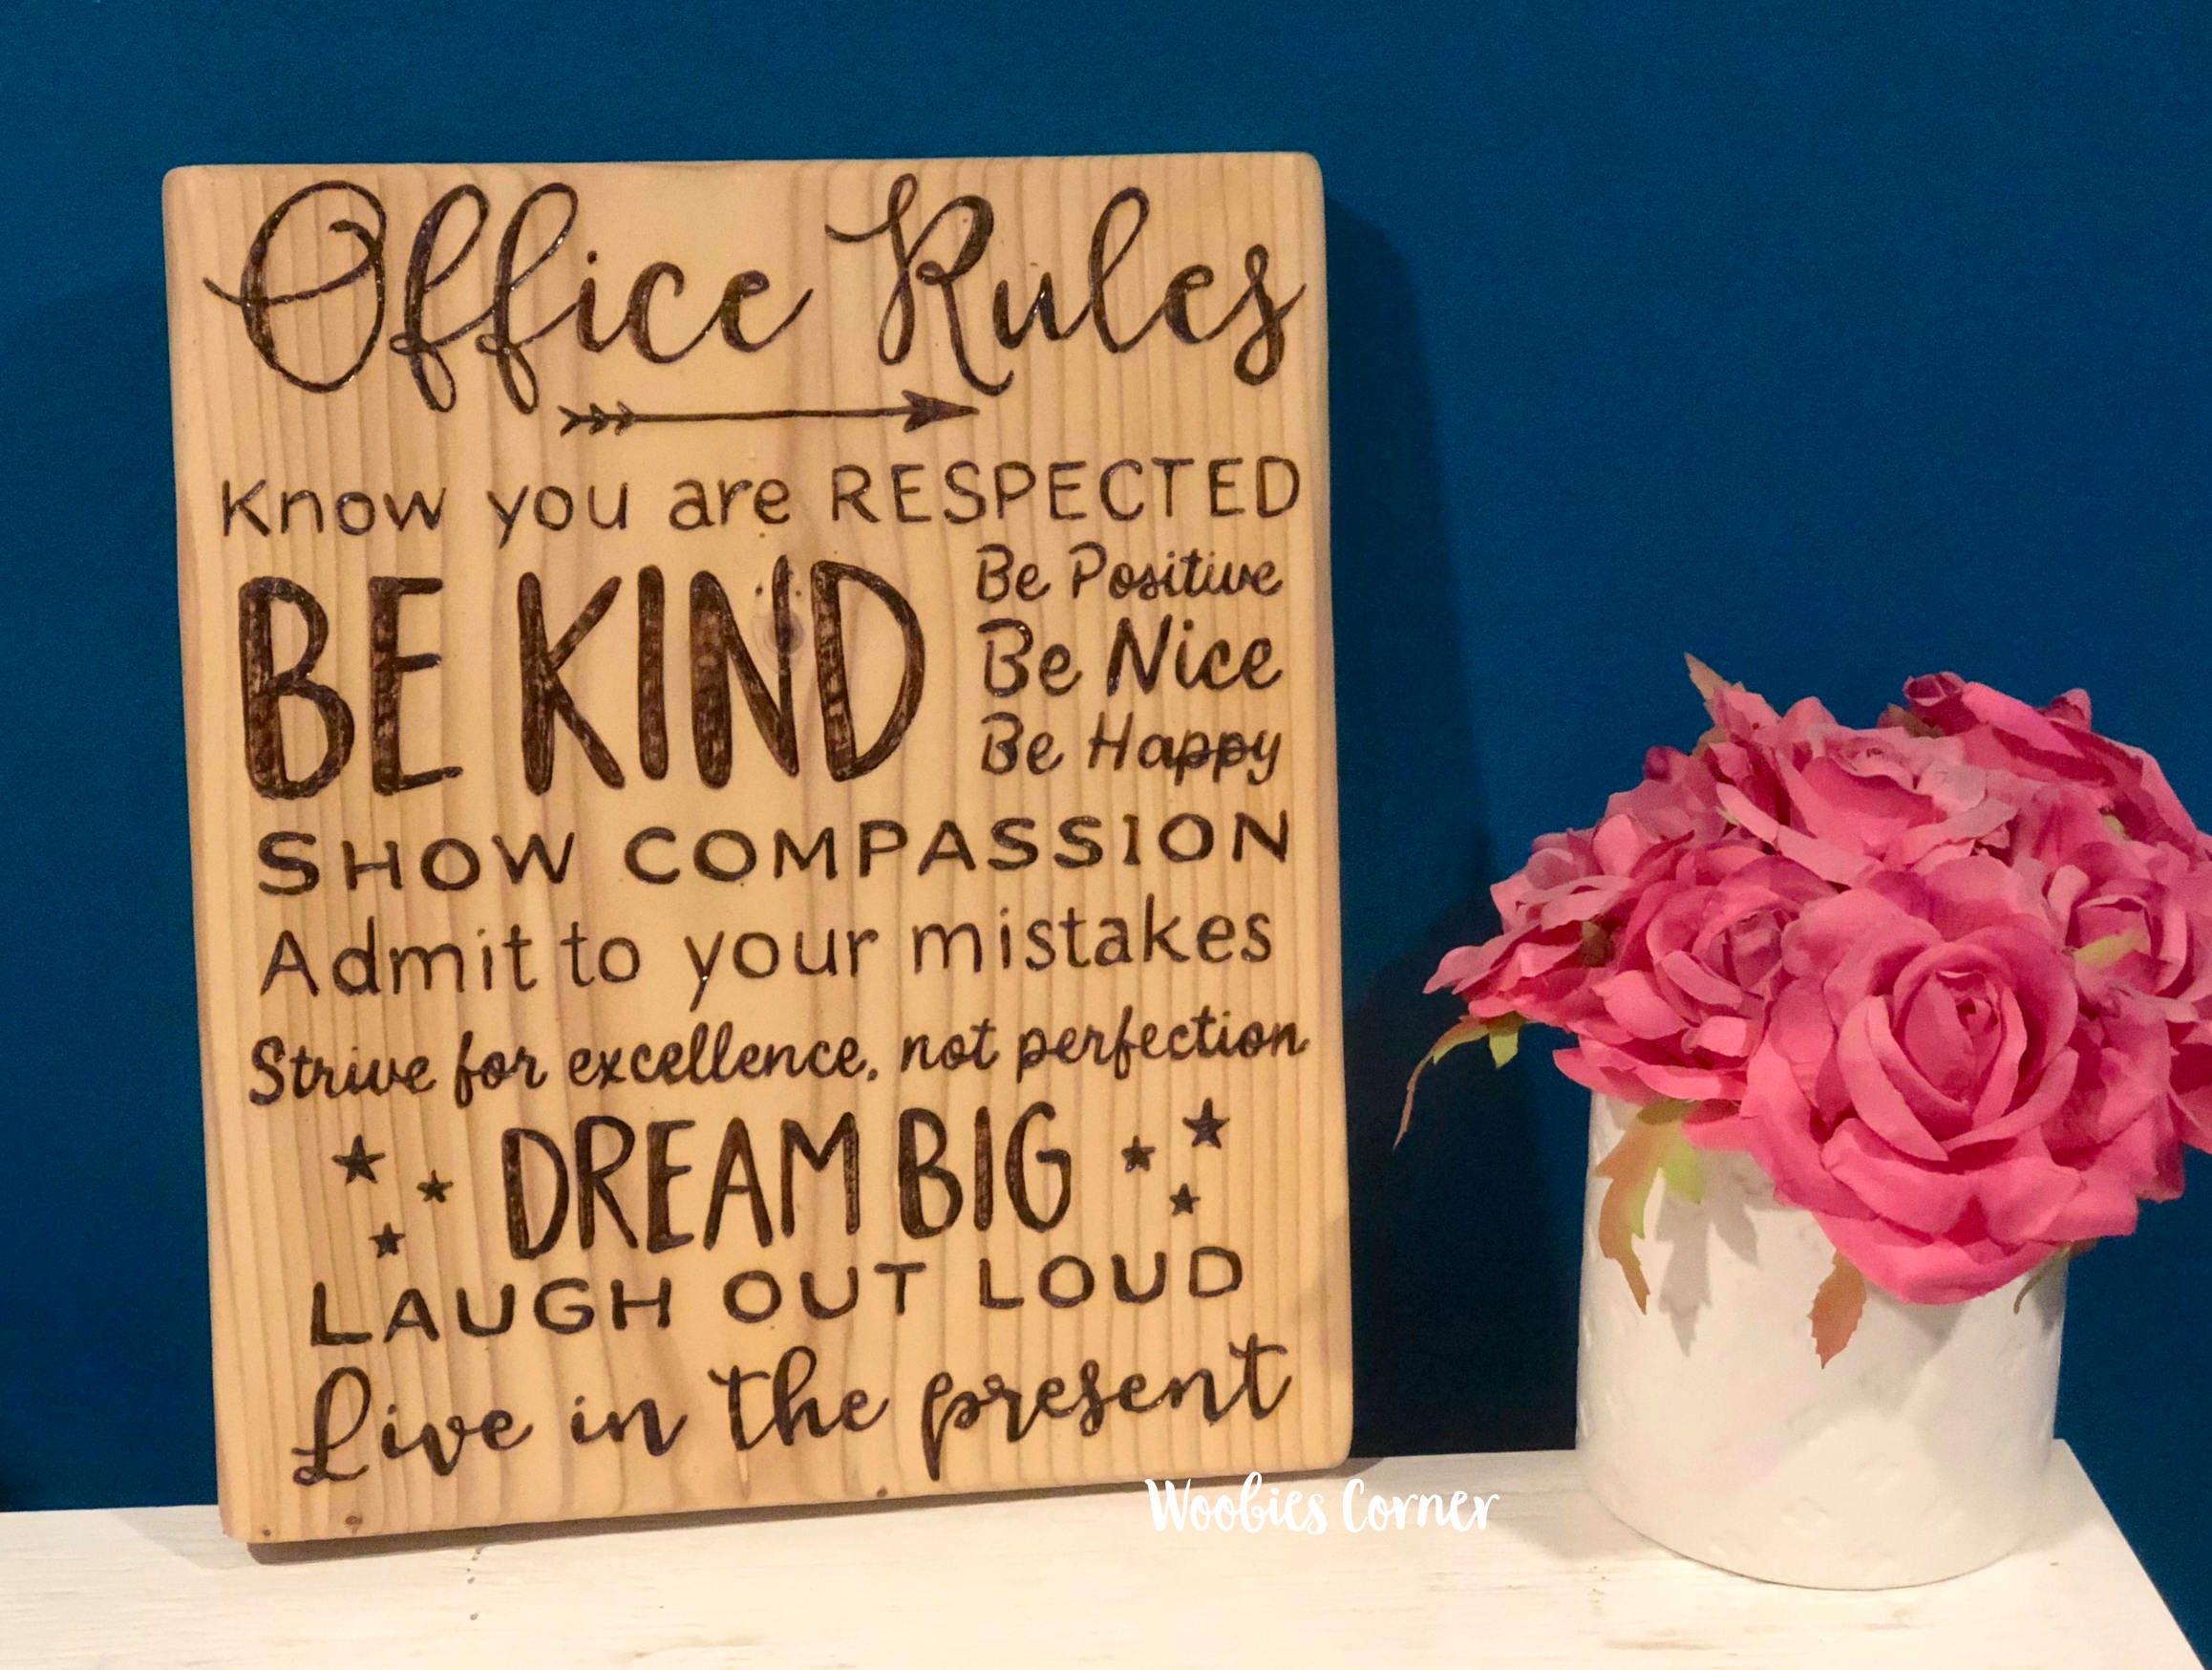 Office Rules
Know you are RESPECTED
BE KIND
Be Positive
Be Nice
Be Happy
SHOW COMPASSION
Admit to your mistakes
Strive for excellence, not perfection
DREAM BIG
LAUGH OUT LOUD
Live in the present
Woobies Corner